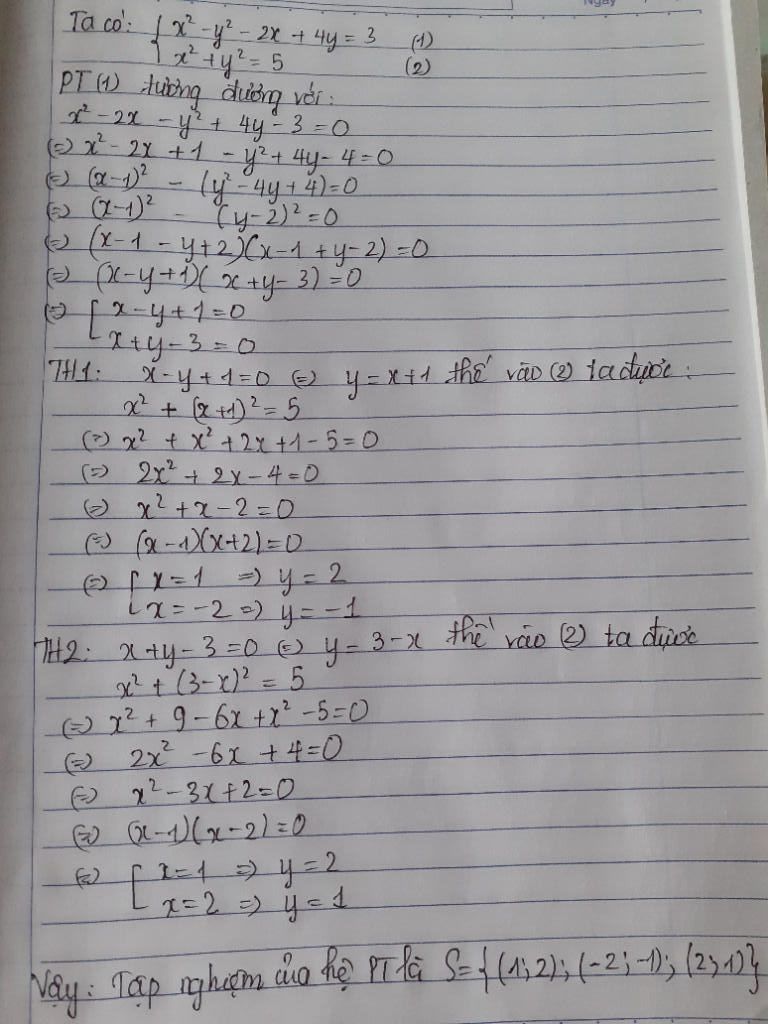 Ngày
Ta có: { x² - y² - 2x + 4y = 3 (1)
x² + y² = 5 (2)
PT (1) tương đương với:
x² - 2x - y² + 4y - 3 = 0
(=) x² - 2x + 1 - y² + 4y - 4 = 0
(=) (x-1)² - (y² - 4y + 4) = 0
(=) (x-1)² - (y-2)² = 0
(=) (x-1 - y+2)(x-1 + y-2) = 0
(=) (x-y+1)(x+y-3) = 0
(=) [ x - y + 1 = 0
x + y - 3 = 0
TH1: x - y + 1 = 0 (=) y = x+1 thế vào (2) ta được:
x² + (x+1)² = 5
(=) x² + x² + 2x + 1 - 5 = 0
(=) 2x² + 2x - 4 = 0
(=) x² + x - 2 = 0
(=) (x-1)(x+2) = 0
(=) [ x = 1 => y = 2
x = -2 => y = -1
TH2: x + y - 3 = 0 (=) y = 3 - x thế vào (2) ta được
x² + (3-x)² = 5
(=) x² + 9 - 6x + x² - 5 = 0
(=) 2x² - 6x + 4 = 0
(=) x² - 3x + 2 = 0
(=) (x-1)(x-2) = 0
(=) [ x = 1 => y = 2
x = 2 => y = 1
Vậy: Tập nghiệm của hệ PT là S = {(1; 2); (-2; -1); (2; 1)}